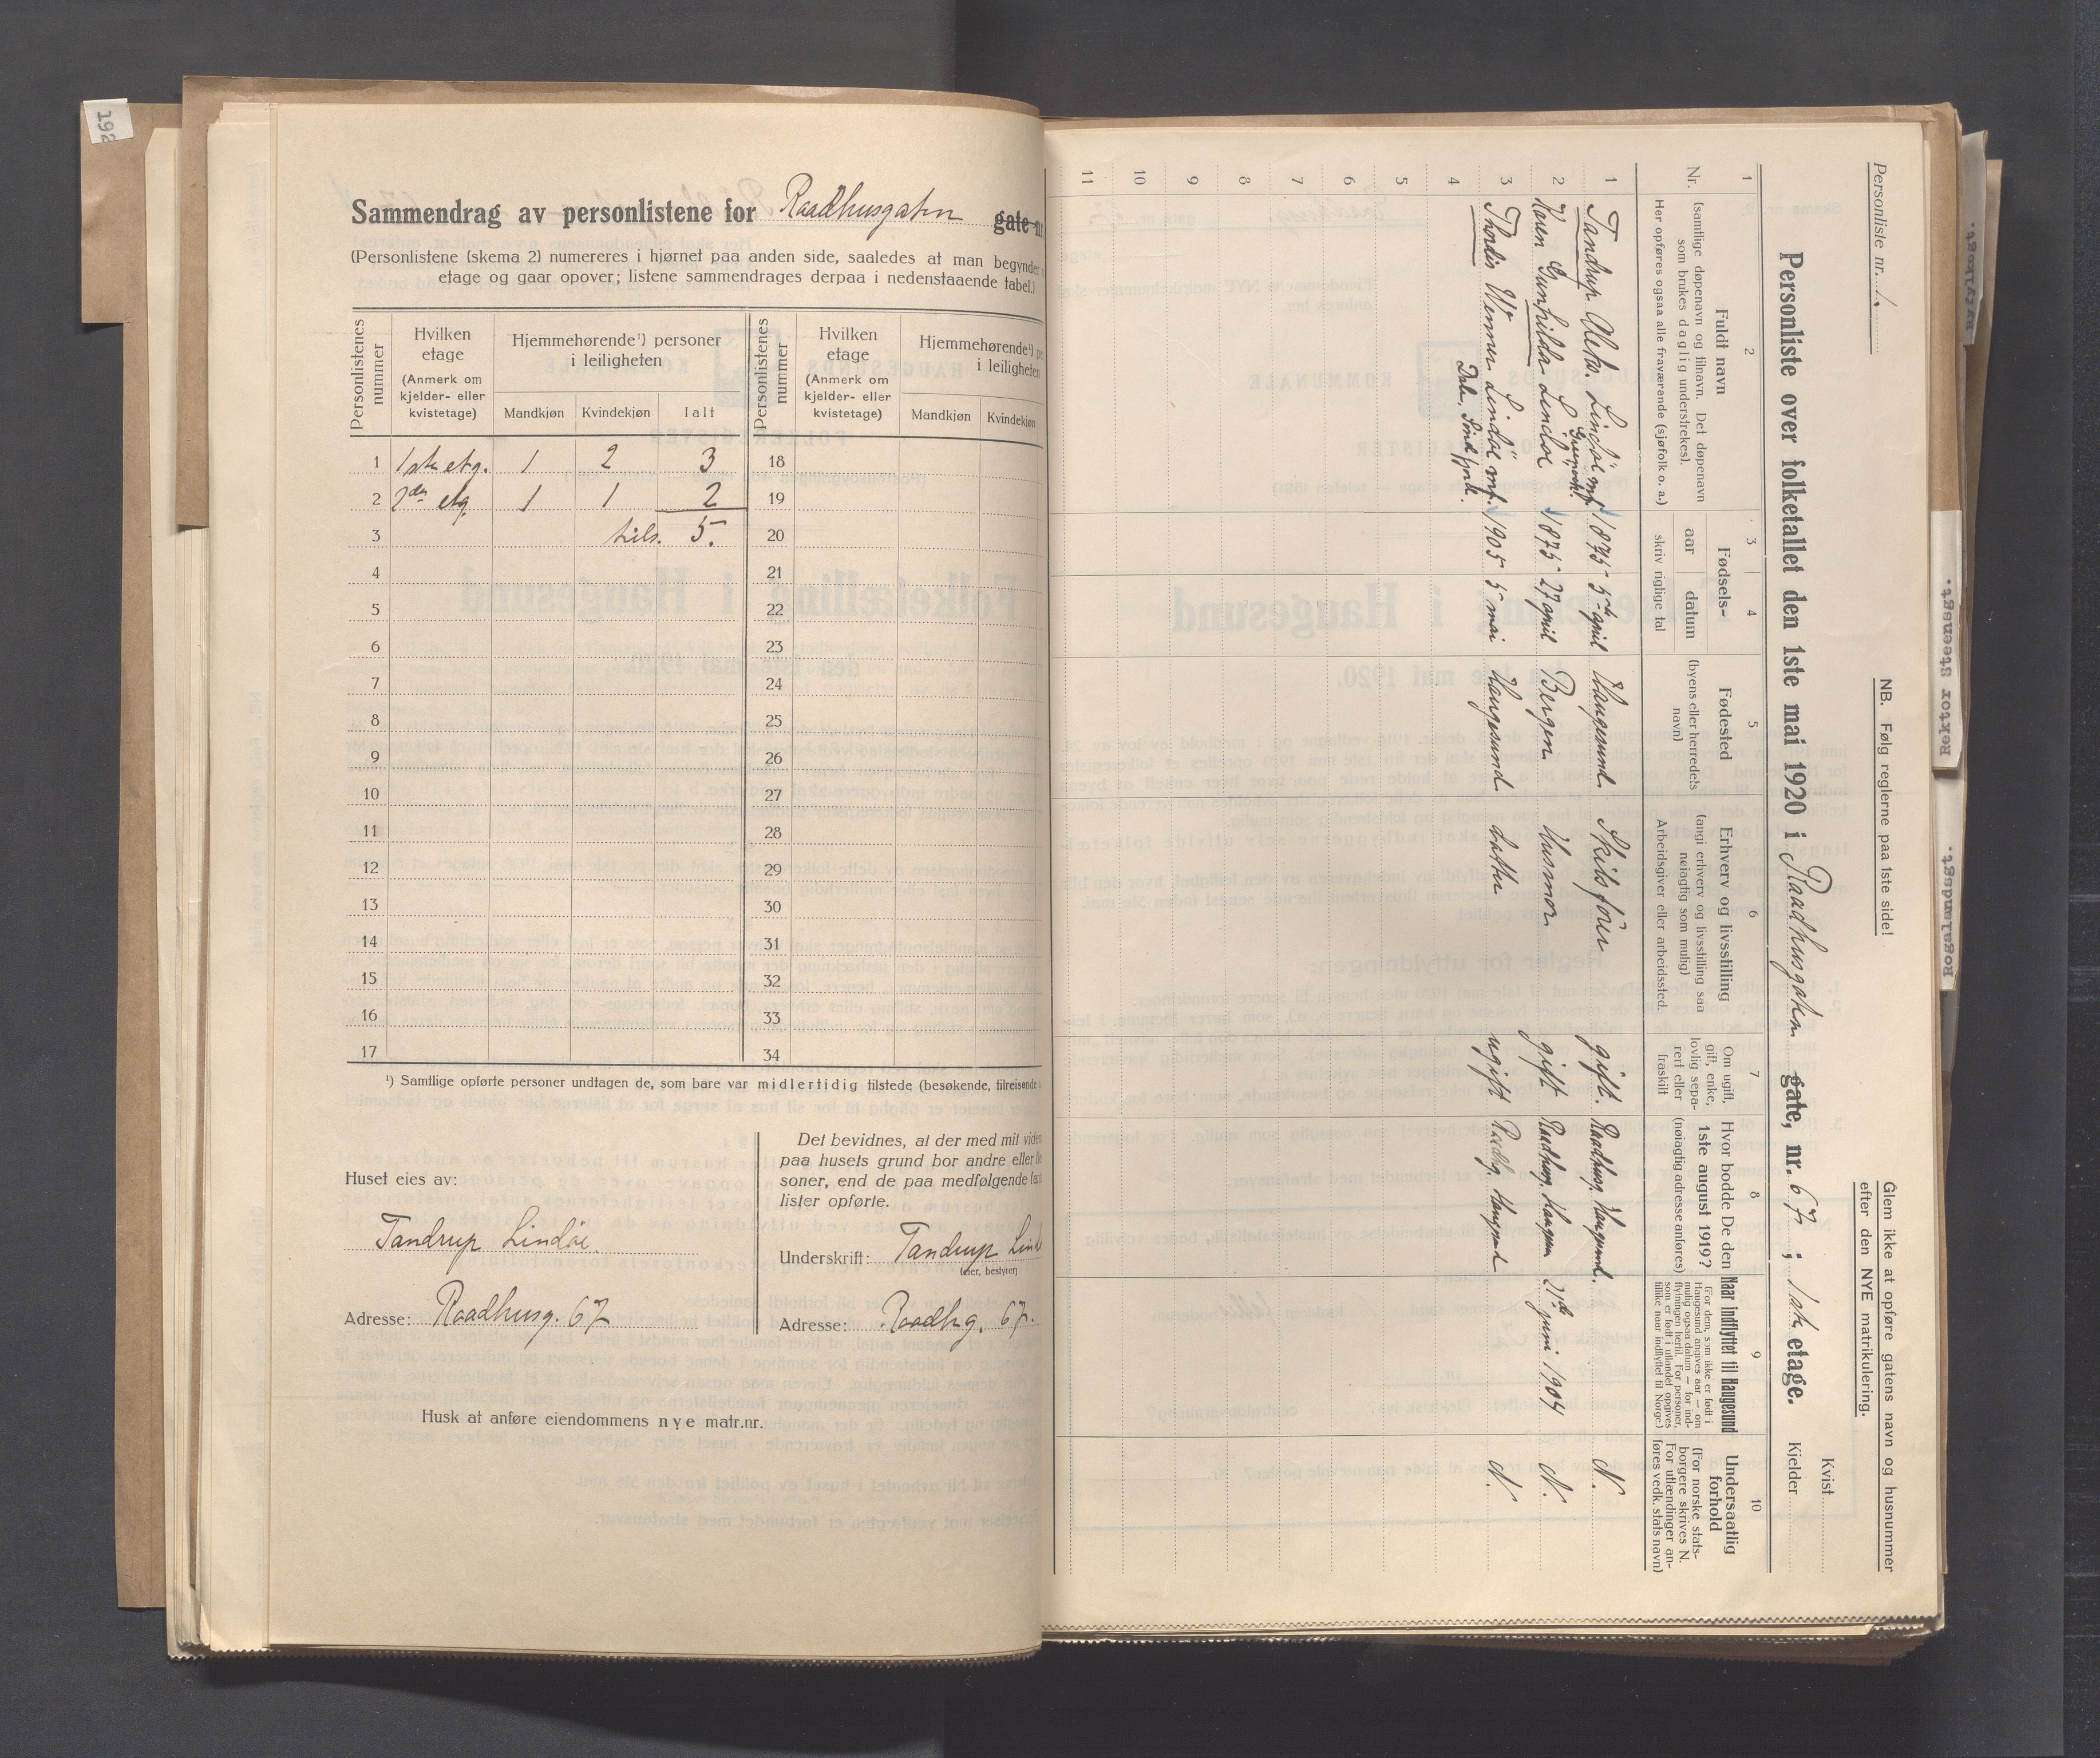 192
Sammendrag av personlistene for Raadhusgaten gate nr.
(Personlistene (skema 2) numereres i hjørnet paa anden side, saaledes at man begynder
etage og gaar opover; listene sammendrages derpaa i nedenstaaende tabel.)
Personlistenes nummer
Hvilken etage (Anmerk om kjelder- eller kvistetage)
Hjemmehørende¹) personer i leiligheten
Mandkjøn Kvindekjøn Ialt
Personlistenes nummer
Hvilken etage (Anmerk om kjelder- eller kvistetage)
Hjemmehørende¹) i leiligheten
Mandkjøn Kvindekjøn
1 1ste etg. 1 2 3 18
2 2den etg. 1 1 2 19
3 tils. 5. 20
4 21
5 22
6 23
7 24
8 25
9 26
10 27
11 28
12 29
13 30
14 31
15 32
16 33
17 34
¹) Samtlige opførte personer undtagen de, som bare var midlertidig tilstede (besøkende, tilreisende
Huset eies av:
Tandrup Lindøe.
Adresse: Raadhusg. 67
Det bevidnes, at der med mit viden
paa husets grund bor andre eller
soner, end de paa medfølgende
lister opførte.
Underskrift: Tandrup
(eier, bestyrer)
Adresse: Raadhg. 67.
Husk at anføre eiendommens nye matr.nr.
Personliste nr. 1.
NB. Følg reglerne paa 1ste side!
Glem ikke at opføre gatens navn og husnummer
efter den NYE matrikulering.
Personliste over folketallet den 1ste mai 1920 i Raadhusgaten gate, nr. 67; 1ste etage.
Kvist
Kjelder
1 2 3 4 5 6 7 8 9 10
Nr.
Fuldt navn
(samtlige døpenavn og tilnavn. Det døpenavn
som brukes daglig understrekes).
Her opføres ogsaa alle fraværende (sjøfolk o. a.)
Fødsels-
aar datum
skriv riglige tal
Fødested
(byens eller herredets
navn)
Erhverv og livsstilling
(angi erhverv og livsstilling saa
nøiagtig som mulig)
Arbeidsgiver eller arbeidssted.
Om ugift,
gift, enke,
lovlig sepa-
rert eller
fraskilt
Hvor bodde De den
1ste august 1919?
(nøiagtig adresse anføres)
Naar indflyttet til Haugesund
(For dem, som ikke er født i
Haugesund angives aar — om
mulig ogsaa datum — for ind-
flytningen hertil. For personer,
som er født i utlandet opgives
tillike naar indflyttet til Norge.)
Undersaatlig
forhold
(For norske stats-
borgere skrives N.
For utlændinger an-
føres vedk. stats navn)
1 Tandrup Lindøe 1875 5te april Haugesund gift. Raadhusg. Haugesund. N.
2 Karen Gunhilda Lindøe 1875 27 april Bergen Husmor gift Raadhusg. Haugesun 21de juni 1904 N.
3 Thordis Lindøe 1905 5 mai Haugesund datter ugift Raadhg. Haugesund N.
4
5
6
7
8
9
10
11
Rektor Stensgt.
Rogalandsgt.